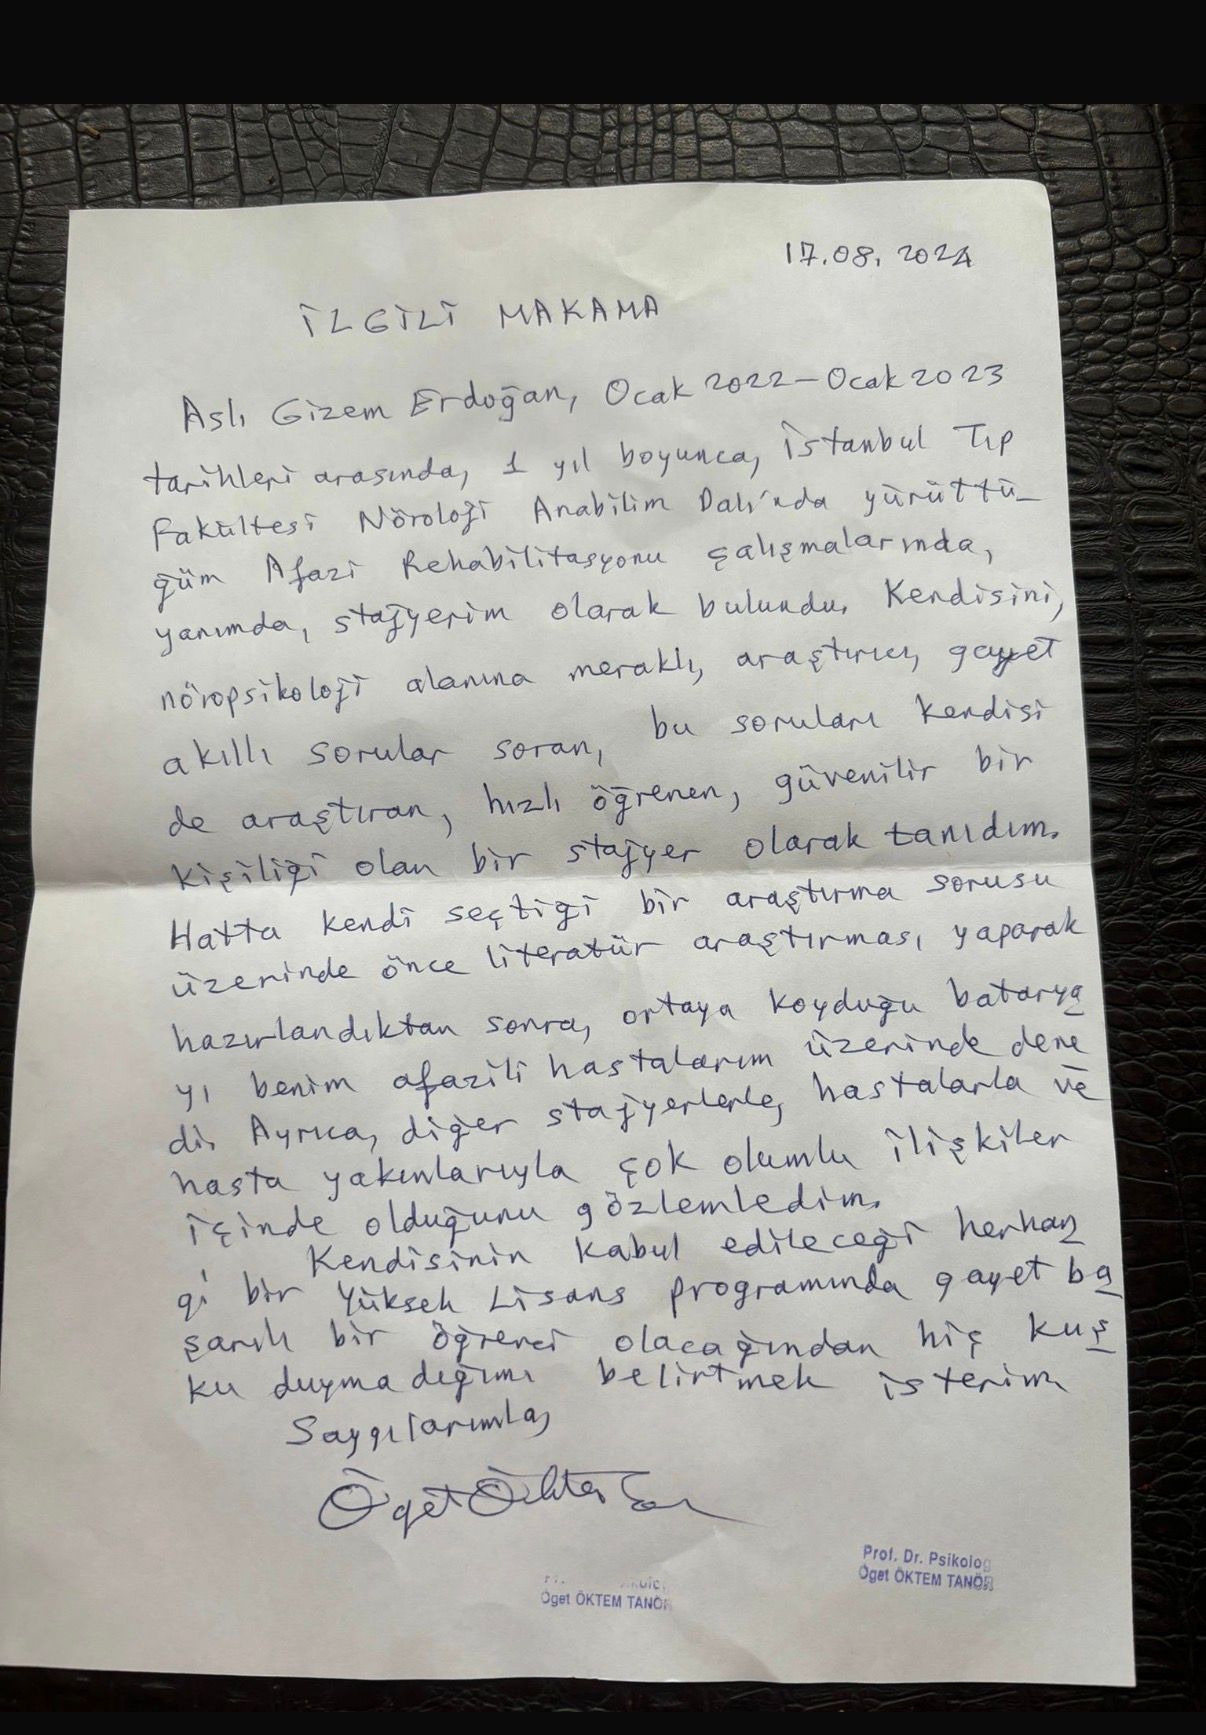 17.08.2024
İLGİLİ MAKAMA
Aslı Gizem Erdoğan, Ocak 2022-Ocak 2023
tarihleri arasında, 1 yıl boyunca, İstanbul Tıp
Fakültesi Nöroloji Anabilim Dalı'nda yürüttü-
ğüm Afazi Rehabilitasyonu çalışmalarında,
yanımda, stajyerim olarak bulundu. Kendisini,
nöropsikoloji alanına meraklı, araştırıcı, gayet
akıllı sorular soran, bu soruları kendisi
de araştıran, hızlı öğrenen, güvenilir bir
kişiliği olan bir stajyer olarak tanıdım.
Hatta kendi seçtiği bir araştırma sorusu
üzerinde önce literatür araştırması yaparak
hazırlandıktan sonra, ortaya koyduğu batarya
yı benim afazili hastalarım üzerinde dene
di. Ayrıca, diğer stajyerlerle, hastalarla ve
hasta yakınlarıyla çok olumlu ilişkiler
içinde olduğunu gözlemledim.
Kendisinin kabul edileceği herhan
gi bir Yüksek Lisans programında gayet ba
şarılı bir öğrenci olacağından hiç kuş
ku duymadığımı belirtmek isterim.
Saygılarımla,
Öget Öktem
Prof. Dr. Psikolog
Öget ÖKTEM TANÖR
Öget ÖKTEM TANÖR